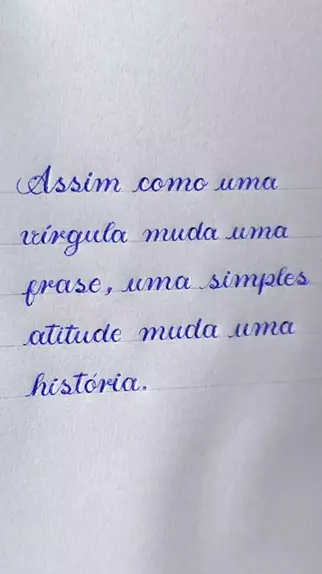 Assim como uma
vírgula muda uma
frase, uma simples
atitude muda uma
história.